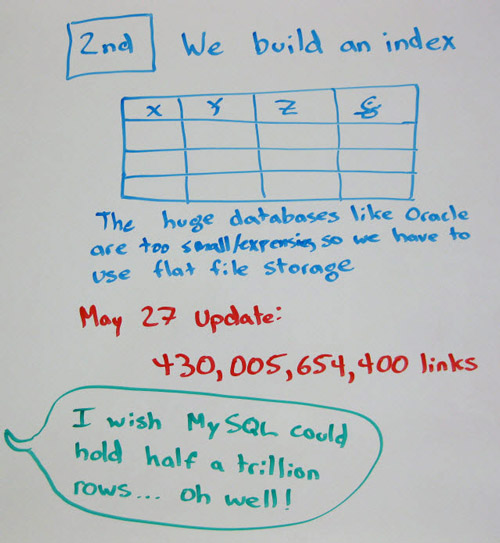 2nd We build an index
X Y Z
The huge databases like Oracle
are too small/expensive, so we have to
use flat file storage
May 27 Update:
430,005,654,400 links
I wish MySQL could
hold half a trillion
rows... oh well!